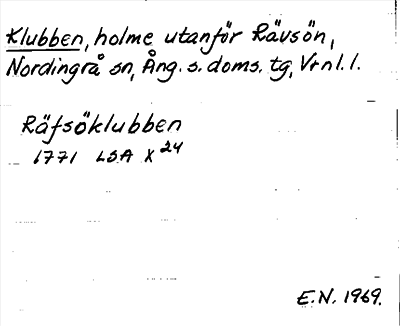 Klubben, holme utanför Rävsön,
Nordingrå sn, Ång. s. doms. tg, Vrnl. l.
Räfsöklubben
1771 LSA X 24
E.N. 1969.